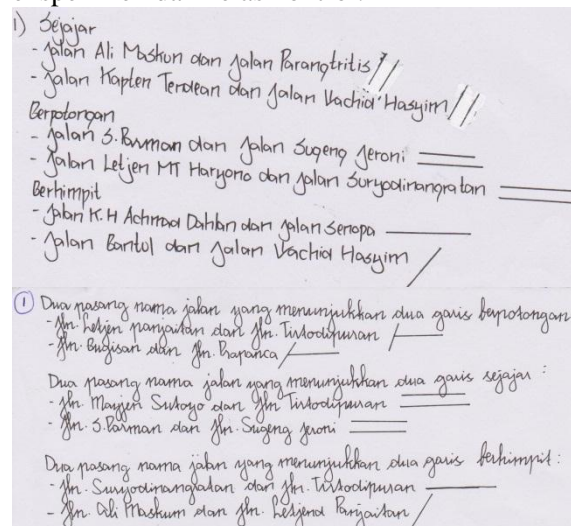 1) Sejajar
- Jalan Ali Maskun dan Jalan Parangtritis
- Jalan Kapten Tendean dan Jalan Wachid Hasyim
Berpotongan
- Jalan S. Parman dan Jalan Sugeng Jeroni
- Jalan Letjen MT Haryono dan Jalan Suryodiningratan
Berhimpit
- Jalan K.H Achmad Dahlan dan Jalan Senopa
- Jalan Bantul dan Jalan Wachid Hasyim
1 Dua pasang nama jalan yang menunjukkan dua garis berpotongan
- Jln. Letjen panjaitan dan Jln. Tirtodipuran
- Jln. Bugisan dan Jln. Prapanca
Dua pasang nama jalan yang menunjukkan dua garis sejajar :
- Jln. Mayjen Sutoyo dan Jln Tirtodipuran
- Jln. S. Parman dan Jln. Sugeng Jeroni
Dua pasang nama jalan yang menunjukkan dua garis berhimpit :
- Jln. Suryodiningratan dan Jln. Tirtodipuran
- Jln. Ali Maskum dan Jln. Letjend Panjaitan